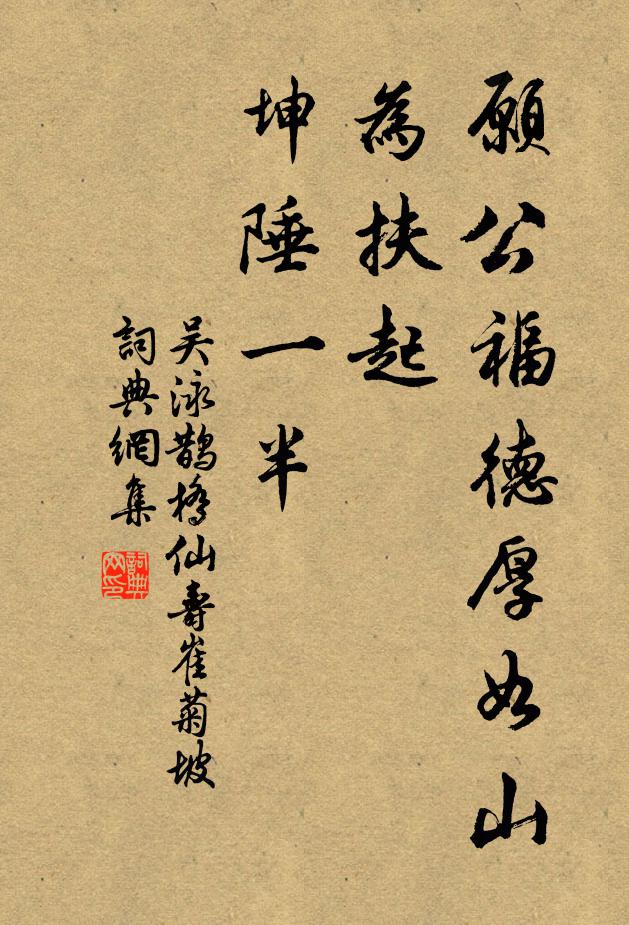 願公福德厚如山
為扶起
坤陲一半
吴泳鵲橋仙壽崔菊坡
詞典網集
詞典网印